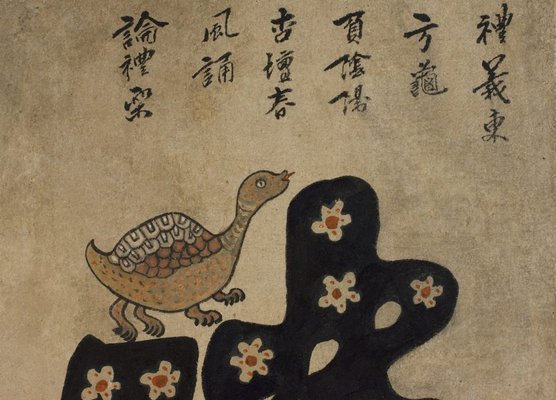 禮義東
方龜
頁陰陽
杏壇春
風誦
論禮樂